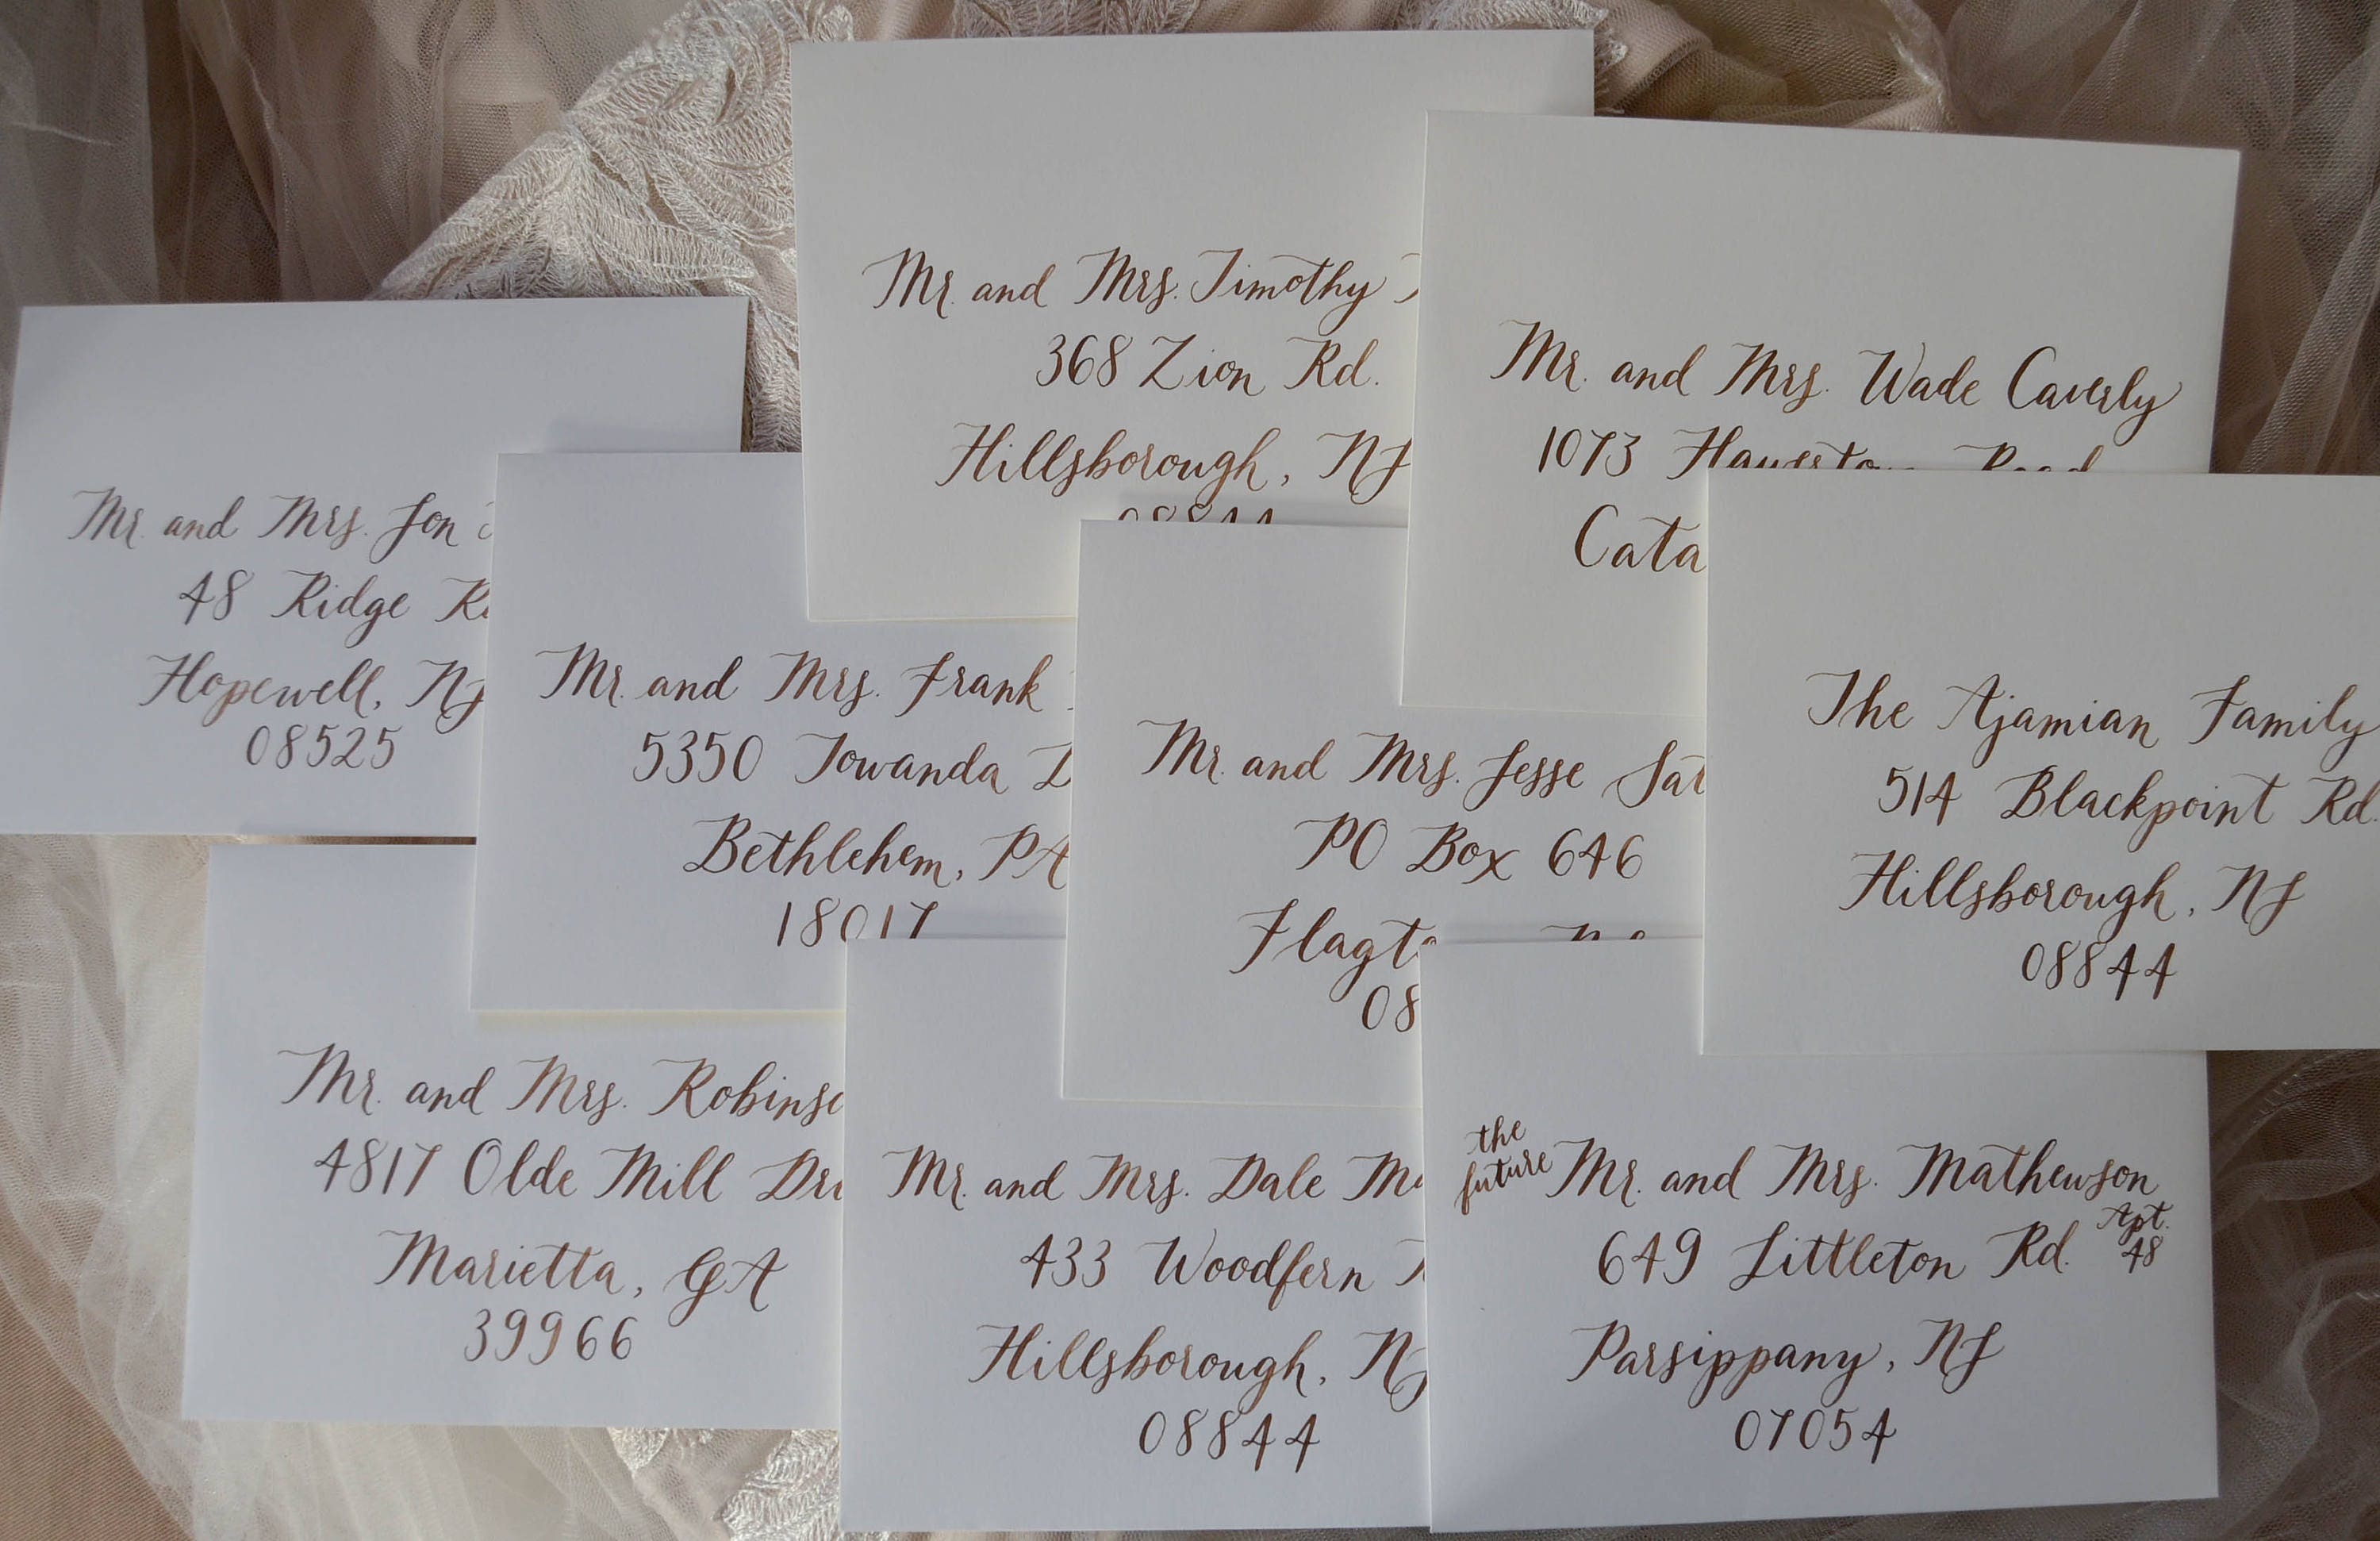 Mr. and Mrs. Timothy
368 Zion Rd.
Hillsborough, NJ
08844
Mr. and Mrs. Wade Caverly
1073 Road
Mr. and Mrs. Jon
48 Ridge
Hopewell, NJ
08525
Mr. and Mrs. Frank
5350 Towanda
Bethlehem, PA
18017
Mr. and Mrs. Jesse
PO Box 646
The Ajamian Family
514 Blackpoint Rd.
Hillsborough, NJ
08844
Mr. and Mrs.
4817 Olde Mill
Marietta, GA
39966
Mr. and Mrs. Dale
433 Woodfern
Hillsborough, NJ
08844
the
future Mr. and Mrs. Mathewson
649 Littleton Rd. Apt.
48
Parsippany, NJ
07054